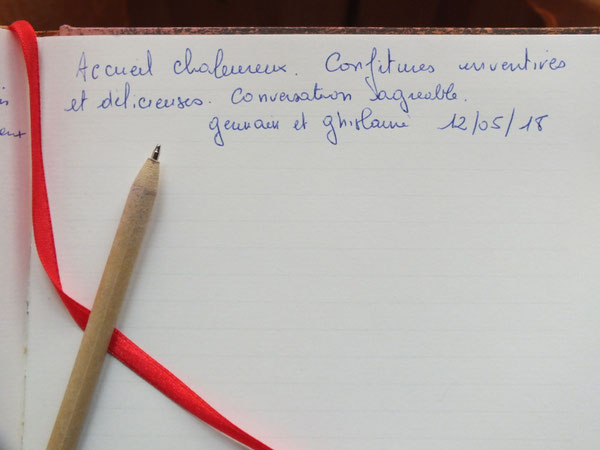 Accueil chaleureux. Confitures inventives
et délicieuses. Conversation agréable.
germain et ghislaine 12/05/18